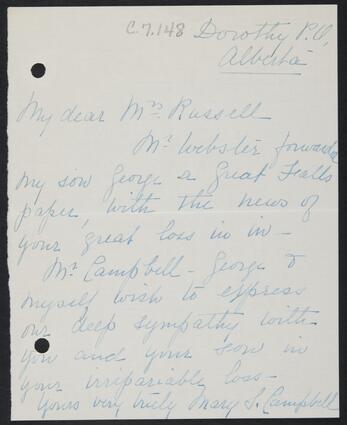 C.7.148 Dorothy P.O,
Alberta
My dear Mrs Russell
Mr Webster forwarded
my son George a Great Falls
paper, with the news of
your great loss in in -
Mr Campbell - George &
myself wish to express
our deep sympathy with
you and your son in
your irripariable loss -
Yours very truly Mary S. Campbell